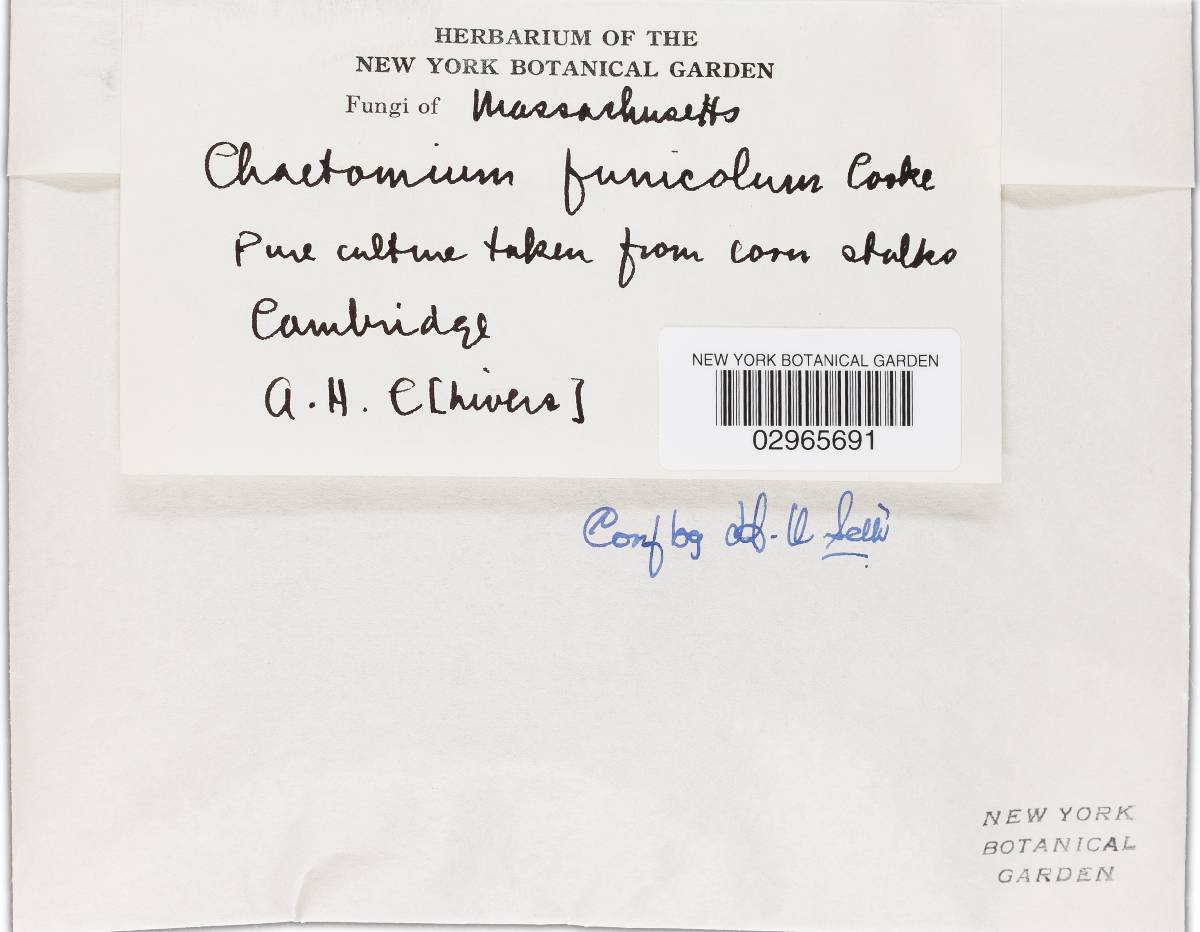 HERBARIUM OF THE
NEW YORK BOTANICAL GARDEN
Fungi of Massachusetts
Chaetomium funicolum Cooke
Pure culture taken from corn stalks
Cambridge
A. H. C[hivers]
NEW YORK BOTANICAL GARDEN
02965691
Conf by
NEW YORK
BOTANICAL
GARDEN